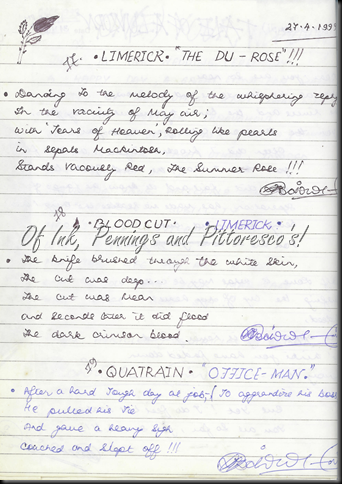 27-4-199
17. • LIMERICK • "THE DU-ROSE"!!!
• Dancing to the melody of the whisphering
In the vacinity of May air;
With 'Tears of Heaven', rolling like pearls
in sepals Mackintosh,
Stands Vacously Red, The Summer Rose !!!
18
• BLOOD CUT • LIMERICK •
Of Ink, Pennings and Pittoresco's!
• The knife brushed through the white skin,
The cut was deep...
The cut was mean
and seconds later it did flood
The dark crimson blood.
59
• QUATRAIN • "OFFICE-MAN."
• After a hard tough day at job, To aggrandize his boss
He pulled his tie
And gave a heavy sigh
Coached and slept off !!!